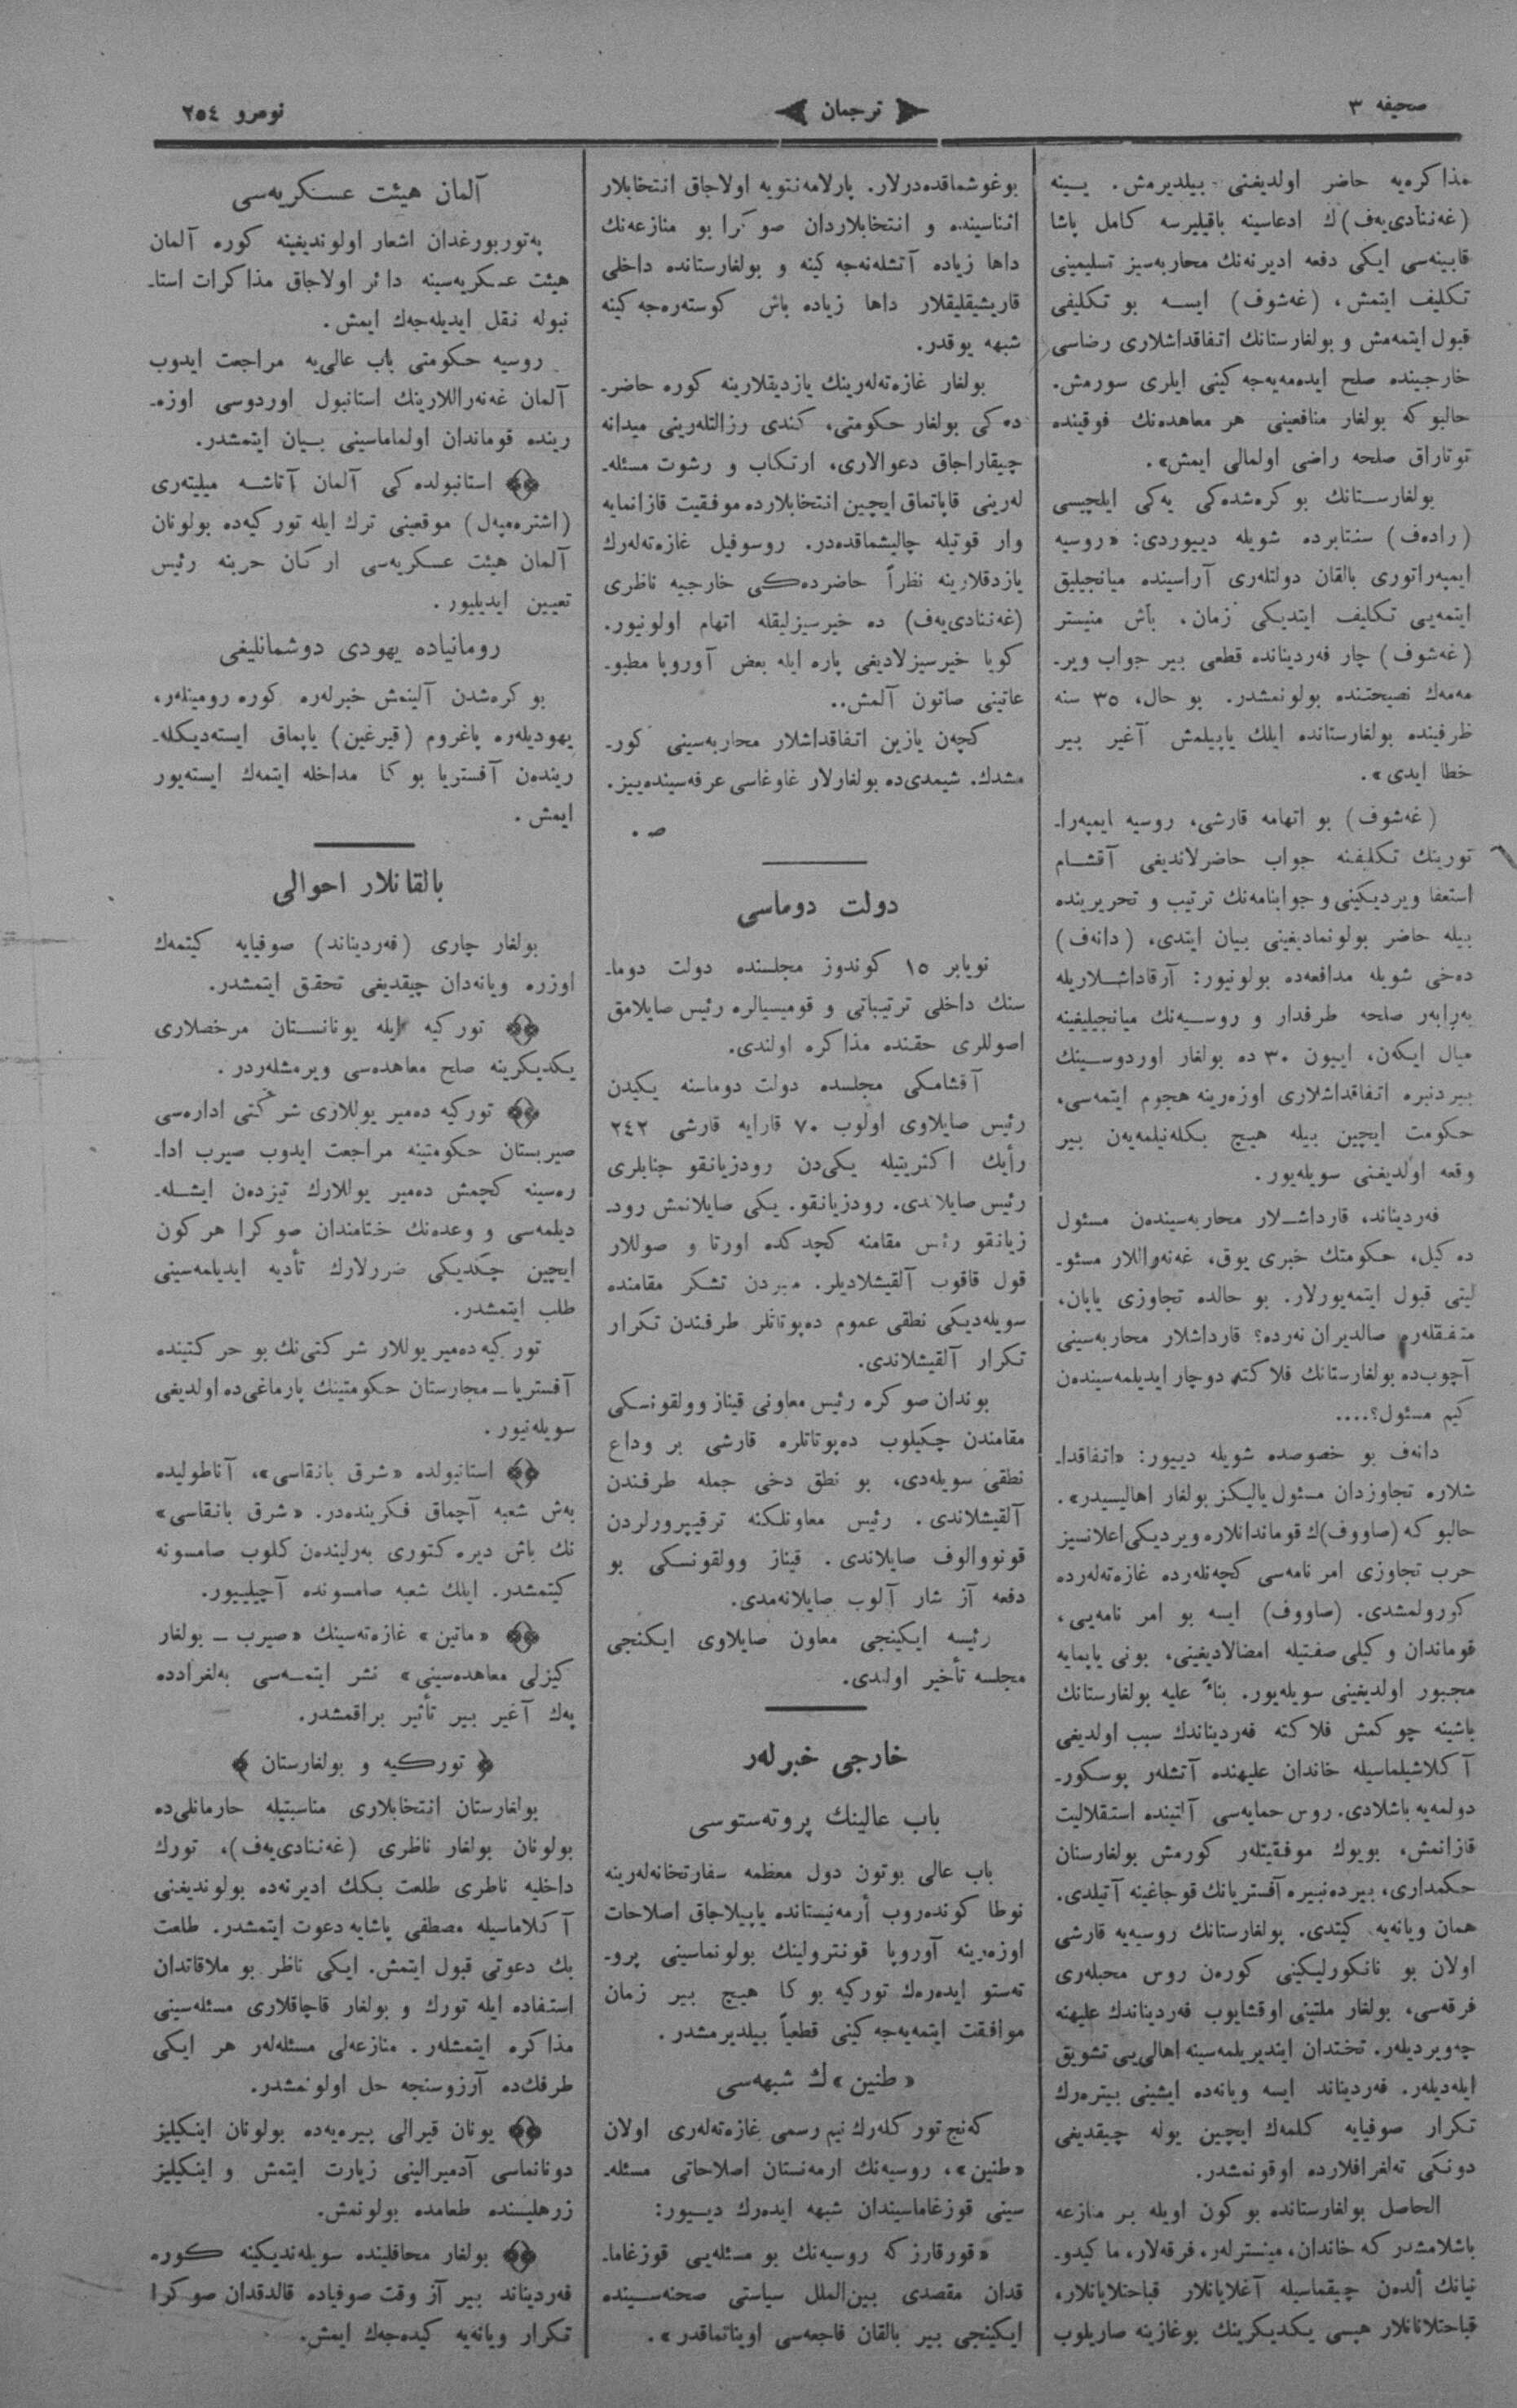 صحيفه ٣
ترجمان
نومرو ٢٥٤
مذاكره‌يه حاضر اولديغنى بيلديرمش. يينه
(غه‌ننادى‌يه‌ف)ك ادعاسينه باقيليرسه كامل پاشا
قابينه‌سى ايكى دفعه اديرنه‌نك محاربه‌سيز تسليمينى
تكليف ايتمش، (غه‌شوف) ايسه بو تكليفى
قبول ايتمه‌مش و بولغارستانك اتفاقداشلارى رضاسى
خارجينده صلح ايده‌مه‌يه‌جه‌كينى ايلرى سورمش.
حالبوكه بولغار منافعينى هر معاهده‌نك فوقينده
توتاراق صلحه راضى اولمالى ايمش».
بولغارستانك بوكره‌شده‌كى يه‌كى ايلچيسى
(راده‌ف) سنتابرده شويله دييوردى: «روسيه
ايمپه‌راتورى بالقان دولتله‌رى آراسينده ميانجيليق
ايتمه‌يى تكليف ايتديكى زمان، باش منيستر
(غه‌شوف) چار فه‌رديناند‌ه قطعى بير جواب وير-
مه‌مه‌ك نصيحتنده بولونمشدر. بو حال، ٣٥ سنه
ظرفينده بولغارستانده ايلك ياپيلمش آغير بير
خطا ايدى».
(غه‌شوف) بو اتهامه قارشى، روسيه ايمپه‌را-
تورينك تكليفنه جواب حاضرلانديغى آقشام
استعفا ويرديكينى و جوابنامه‌نك ترتيب و تحريرينده
بيله حاضر بولونماديغينى بيان ايتدى، (دانه‌ف)
ده‌خى شويله مدافعه‌ده بولونيور: آرقاداشلاريله
به‌رابه‌ر صلحه طرفدار و روسيه‌نك ميانجيليغينه
ميال ايكه‌ن، اييون ٣٠ ده بولغار اوردوسينك
بيردنبره اتفاقداشلارى اوزه‌رينه هجوم ايتمه‌سى،
حكومت ايچين بيله هيچ بكله‌نيلمه‌يه‌ن بير
وقعه اولديغنى سويله‌يور.
فه‌رديناند، قارداشلار محاربه‌سينده‌ن مسئول
ده‌كيل، حكومتك خبرى يوق، غه‌نه‌راللار مسئو-
ليتى قبول ايتمه‌يورلار. بو حالده تجاوزى ياپان،
متفقله‌ره صالديران نه‌رده؟ قارداشلار محاربه‌سينى
آچوب‌ده بولغارستانك فلاكته دوچار ايديلمه‌سينده‌ن
كيم مسئول؟....
دانه‌ف بو خصوصده شويله دييور: «اتفاقدا-
شلاره تجاوزدان مسئول يالیكز بولغار اهاليسيدر».
حالبوكه (صاووف)ك قوماندانلاره ويرديكى اعلانسيز
حرب تجاوزى امرنامه‌سى كچه‌نله‌رده غازه‌ته‌له‌رده
كورولمشدى. (صاووف) ايسه بو امر نامه‌يى،
قوماندان وكيلى صفتيله امضالاديغينى، بونى ياپمايه
مجبور اولديغينى سويله‌يور. بناءً عليه بولغارستانك
باشينه چوكمش فلاكته فه‌رديناندك سبب اولديغى
آكلاشيلماسيله خاندان عليهنده آتشله‌ر پوسكور-
دولمه‌يه باشلادى. روس حمايه‌سى آلتينده استقلاليت
قازانمش، بويوك موفقيتله‌ر كورمش بولغارستان
حكمدارى، بيرده‌نبيره آفستريانك قوجاغينه آتيلدى.
همان ويانه‌يه كيتدى. بولغارستانك روسيه‌يه قارشى
اولان بو نانكورليكينى كوره‌ن روس محبله‌رى
فرقه‌سى، بولغار ملتينى اوقشايوب فه‌رديناندك عليهنه
چه‌ويرديله‌ر. تختدان اينديريلمه‌سينه اهالى‌يى تشويق
ايله‌ديله‌ر. فه‌رديناند ايسه ويانه‌ده ايشينى بيتره‌رك
تكرار صوفيايه كلمه‌ك ايچين يوله چيقديغى
دونكى ته‌لغرافلارده اوقونمشدر.
الحاصل بولغارستانده بوكون اويله بر منازعه
باشلامشدركه خاندان، مينسترله‌ر، فرقه‌لار، ماكيدو-
نيانك ألده‌ن چيقماسيله آغلايانلار قباحتلايانلار،
قباحتلانانلار هپسى يكديكرينك بوغازينه صاريلوب
بوغوشماقده‌درلار. پارلامه‌نتويه اولاجاق انتخابلار
اثناسينده و انتخابلاردان صوكرا بو منازعه‌نك
داها زياده آتشله‌نه‌جه‌كينه و بولغارستانده داخلى
قاريشيقليقلار داها زياده باش كوستره‌جه‌كينه
شبهه يوقدر.
بولغار غازه‌ته‌له‌رينك يازديقلارينه كوره حاضر-
ده‌كى بولغار حكومتى، كندى رزالتله‌رينى ميدانه
چيقاراجاق دعوالارى، ارتكاب و رشوت مسئله-
له‌رينى قاپاتماق ايچين انتخابلارده موفقيت قازانمايه
وار قوتيله چاليشماقده‌در. روسوفيل غازه‌ته‌له‌رك
يازدقلارينه نظراً حاضرده‌كى خارجيه ناظرى
(غه‌ننادى‌يه‌ف) ده خيرسيزليقله اتهام اولونيور.
كويا خيرسيزلاديغى پاره ايله بعض آوروپا مطبو-
عاتينى صاتون آلمش..
كچه‌ن يازين اتفاقداشلار محاربه‌سينى كور-
مشدك. شيمدى‌ده بولغارلار غاوغاسى عرفه‌سينده‌ييز.
ص.
دولت دوماسى
نويابر ١٥ كوندوز مجلسنده دولت دوما-
سنك داخلى ترتيباتى و قوميسيالره رئيس صايلامق
اصوللرى حقنده مذاكره اولندى.
آقشامكى مجلسده دولت دوماسنه يكيدن
رئيس صايلاوى اولوب ٧٠ قارايه قارشى ٢٤٢
رأيك اكثريتيله يكى‌دن رودزيانقو جنابلرى
رئيس صايلاندى. رودزيانقو. يكى صايلانمش رود-
زيانقو رئس مقامنه كچدكده اورتا و صوللار
قول قاقوب آلقيشلاديلر. منبردن تشكر مقامنده
سويله‌ديكى نطقى عموم ده‌پوتاتلر طرفندن تكرار
تكرار آلقيشلاندى.
بوندان صوكره رئيس معاونى قيناز وولقونسكى
مقامندن چكيلوب ده‌پوتاتلره قارشى بر وداع
نطقى سويله‌دى، بو نطق دخى جمله طرفندن
آلقيشلاندى. رئيس معاونلكنه ترقيپرورلردن
قونووالوف صايلاندى. قيناز وولقونسكى بو
دفعه آز شار آلوب صايلانه‌مدى.
رئيسه ايكينجى معاون صايلاوى ايكنجى
مجلسه تأخير اولندى.
خارجى خبرلەر
باب عالينك پروته‌ستوسى
باب عالى بوتون دول معظمه سفارتخانه‌له‌رينه
نوطا كونده‌روب أرمه‌نيستانده ياپيلاجاق اصلاحات
اوزه‌رينه آوروپا قونترولينك بولونماسينى پرو-
ته‌ستو ايده‌ره‌ك توركيه بوكا هيچ بير زمان
موافقت ايتمه‌يه‌جه‌كينى قطعياً بيلديرمشدر.
«طنين»ك شبهه‌سى
كه‌نج توركله‌رك نيم رسمى غازه‌ته‌له‌رى اولان
«طنين»، روسيه‌نك ارمه‌نستان اصلاحاتى مسئله-
سينى قوزغاماسيندان شبهه ايده‌رك دييور:
«قورقارزكه روسيه‌نك بو مسئله‌يى قوزغاما-
قدان مقصدى بين‌الملل سياستى صحنه‌سينده
ايكينجى بير بالقان فاجعه‌سى اويناتماقدر».
آلمان هيئت عسكريه‌سى
په‌توربورغدان اشعار اولونديغينه كوره آلمان
هيئت عسكريه‌سينه دائر اولاجاق مذاكرات استا-
نبوله نقل ايديله‌جه‌ك ايمش.
روسيه حكومتى باب عالى‌يه مراجعت ايدوب
آلمان غه‌نه‌راللارينك استانبول اوردوسى اوزه-
رينده قوماندان اولماماسينى بيان ايتمشدر.
استانبولده‌كى آلمان آتاشه ميليته‌رى
(اشتره‌مپه‌ل) موقعينى ترك ايله توركيه‌ده بولونان
آلمان هيئت عسكريه‌سى اركان حربنه رئيس
تعيين ايديليور.
رومانياده يهودى دوشمانليغى
بوكره‌شدن آلينمش خبرله‌ره كوره رومينله‌ر،
يهوديله‌ره پاغروم (قيرغين) ياپماق ايسته‌ديكله-
رينده‌ن آفستريا بوكا مداخله ايتمه‌ك ايسته‌يور
ايمش.
بالقانلار احوالى
بولغار چارى (فه‌رديناند) صوفيايه كيتمه‌ك
اوزره ويانه‌دان چيقديغى تحقق ايتمشدر.
توركيه ايله يونانستان مرخصلارى
يكديكرينه صلح معاهده‌سى ويرمشله‌ردر.
توركيه ده‌مير يوللارى شركتى اداره‌سى
صيربستان حكومتينه مراجعت ايدوب صيرب ادا-
ره‌سينه كچمش ده‌مير يوللارك تيزده‌ن ايشله-
ديلمه‌سى و وعده‌نك ختامندان صوكرا هركون
ايچين چكديكى ضررلارك تأديه ايديلمه‌سينى
طلب ايتمشدر.
توركيه ده‌مير يوللار شركتى‌نك بو حركتينده
آفستريا ـ مجارستان حكومتينك پارماغى‌ده اولديغى
سويله‌نيور.
استانبولده «شرق بانقاسى»، آناطوليده
به‌ش شعبه آچماق فكرينده‌در. «شرق بانقاسى»
نك باش ديره‌كتورى به‌رلينده‌ن كلوب صامسونه
كيتمشدر. ايلك شعبه صامسونده آچيلييور.
«ماتين» غازه‌ته‌سينك «صيرب ـ بولغار
كيزلى معاهده‌سينى» نشر ايتمه‌سى به‌لغرادده
په‌ك آغير بير تأثير براقمشدر.
﴿ توركيه و بولغارستان ﴾
بولغارستان انتخابلارى مناسبتيله حارمانلى‌ده
بولونان بولغار ناظرى (غه‌ننادى‌يه‌ف)، تورك
داخليه ناظرى طلعت بكك اديرنه‌ده بولونديغنى
آكلاماسيله مصطفى پاشايه دعوت ايتمشدر. طلعت
بك دعوتى قبول ايتمش. ايكى ناظر بو ملاقاتدان
استفاده ايله تورك و بولغار قاچاقلارى مسئله‌سينى
مذاكره ايتمشله‌ر. منازعه‌لى مسئله‌له‌ر هر ايكى
طرفك‌ده آرزوسنجه حل اولونمشدر.
يونان قيرالى پيره‌يه‌ده بولونان اينكيليز
دونانماسى آدميرالينى زيارت ايتمش و اينكيليز
زرهليسنده طعامده بولونمش.
بولغار محافلينده سويله‌نديكينه كوره
فه‌رديناند بير آز وقت صوفياده قالدقدان صوكرا
تكرار ويانه‌يه كيده‌جه‌ك ايمش.